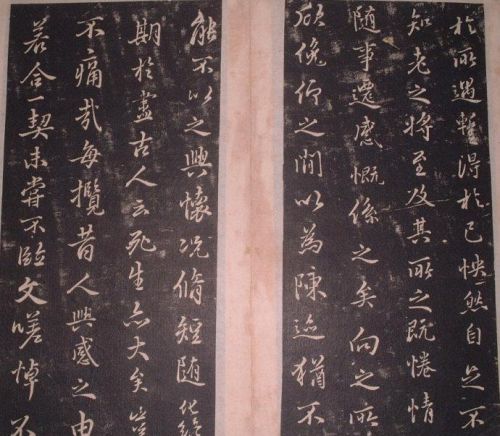 於所遇暫得於己怏然自足不
知老之將至及其所之既惓情
隨事遷感慨係之矣向之所
欣俛仰之間以為陳迹猶不
能不以之興懷況脩短隨化終
期於盡古人云死生亦大矣豈
不痛哉每攬昔人興感之由
若合一契未嘗不臨文嗟悼不